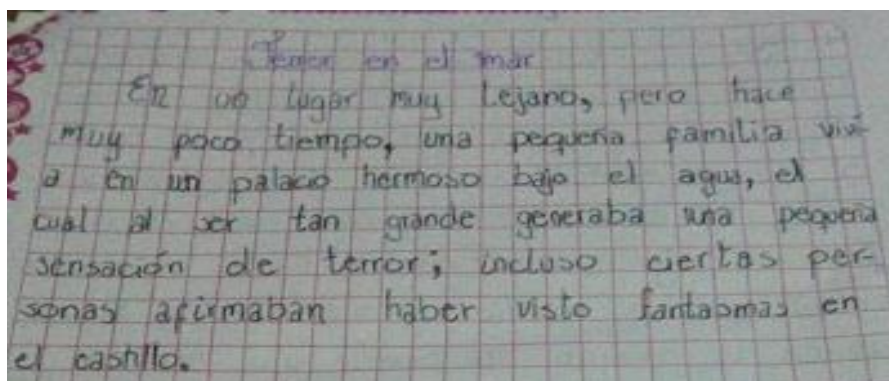 Temor en el mar
En un lugar muy lejano, pero hace
muy poco tiempo, una pequeña familia viví-
a en un palacio hermoso bajo el agua, el
cual al ser tan grande generaba una pequeña
sensación de terror; incluso ciertas per-
sonas afirmaban haber visto fantasmas en
el castillo.